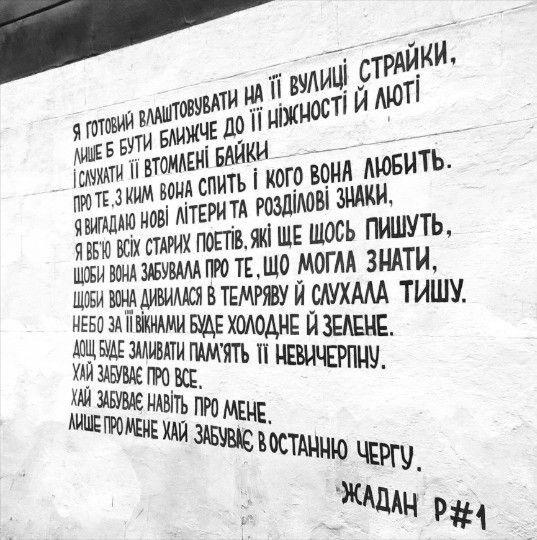 Я ГОТОВИЙ ВЛАШТОВУВАТИ НА ЇЇ ВУЛИЦІ СТРАЙКИ,
ЛИШЕ Б БУТИ БЛИЖЧЕ ДО ЇЇ НІЖНОСТІ Й ЛЮТІ
І СЛУХАТИ ЇЇ ВТОМЛЕНІ БАЙКИ
ПРО ТЕ, З КИМ ВОНА СПИТЬ І КОГО ВОНА ЛЮБИТЬ.
Я ВИГАДАЮ НОВІ ЛІТЕРИ ТА РОЗДІЛОВІ ЗНАКИ,
Я ВБ'Ю ВСІХ СТАРИХ ПОЕТІВ, ЯКІ ЩЕ ЩОСЬ ПИШУТЬ,
ЩОБИ ВОНА ЗАБУВАЛА ПРО ТЕ, ЩО МОГЛА ЗНАТИ,
ЩОБИ ВОНА ДИВИЛАСЯ В ТЕМРЯВУ Й СЛУХАЛА ТИШУ.
НЕБО ЗА ЇЇ ВІКНАМИ БУДЕ ХОЛОДНЕ Й ЗЕЛЕНЕ.
ДОЩ БУДЕ ЗАЛИВАТИ ПАМ'ЯТЬ ЇЇ НЕВИЧЕРПНУ.
ХАЙ ЗАБУВАЄ ПРО ВСЕ.
ХАЙ ЗАБУВАЄ НАВІТЬ ПРО МЕНЕ.
ЛИШЕ ПРО МЕНЕ ХАЙ ЗАБУВАЄ В ОСТАННЮ ЧЕРГУ.
ЖАДАН P#1